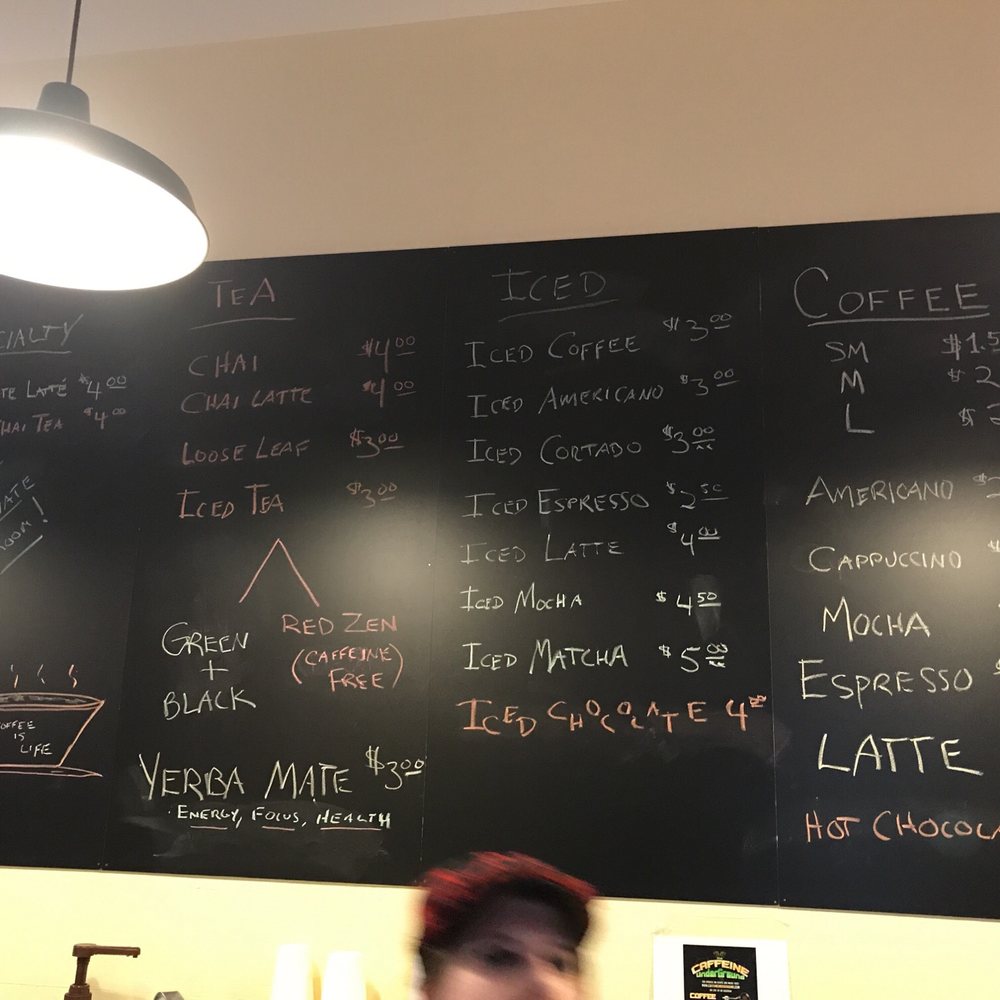 CIALTY
LATTÉ $4.00
CHAI TEA $4.00
COFFEE
IS
LIFE
TEA
CHAI $4.00
CHAI LATTE $4.00
LOOSE LEAF $3.00
ICED TEA $3.00
GREEN
+
BLACK
RED ZEN
(CAFFEINE
FREE)
YERBA MATE $3.00
ENERGY, FOCUS, HEALTH
ICED
ICED COFFEE $3.00
ICED AMERICANO $3.00
ICED CORTADO $3.00
ICED ESPRESSO $2.50
ICED LATTE $4.00
ICED MOCHA $4.50
ICED MATCHA $5.00
ICED CHOCOLATE 4.00
COFFEE
SM $1.5
M $2
L $
AMERICANO $
CAPPUCCINO $
MOCHA
ESPRESSO $
LATTE
HOT CHOCOLA
CAFFEINE
UNDERGROUND
COFFEE